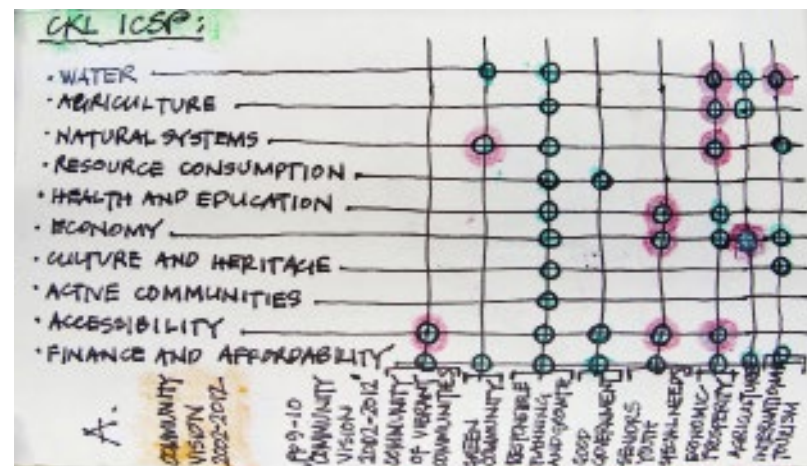 CKL ICSP:
· WATER
· AGRICULTURE
· NATURAL SYSTEMS
· RESOURCE CONSUMPTION
· HEALTH AND EDUCATION
· ECONOMY
· CULTURE AND HERITAGE
· ACTIVE COMMUNITIES
· ACCESSIBILITY
· FINANCE AND AFFORDABILITY
A.
COMMUNITY
VISION
2002-2012
PP 9-10
COMMUNITY
VISION
2002-2012
COMMUNITY
OF VIBRANT
COMMUNITIES
GREEN
COMMUNITY
RESPONSIBLE
PLANNING
GOOD
GOVERNMENT
SENIORS
YOUTH
SPECIAL NEEDS
ECONOMIC
PROSPERITY
AGRICULTURE
INTERNATIONAL
TOURISM